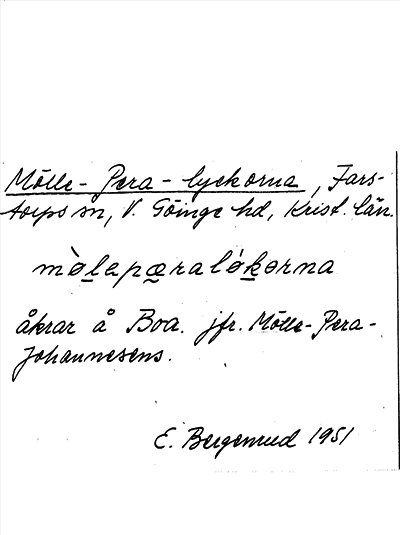 Mölle-Pera-lyckorna, Fars-
torps sn, V. Göinge hd, Krist. län.
mòləpæraløkərna
åkrar å Boa. jfr. Mölle-Pera-
Johannesens.
E. Bergenrud 1951